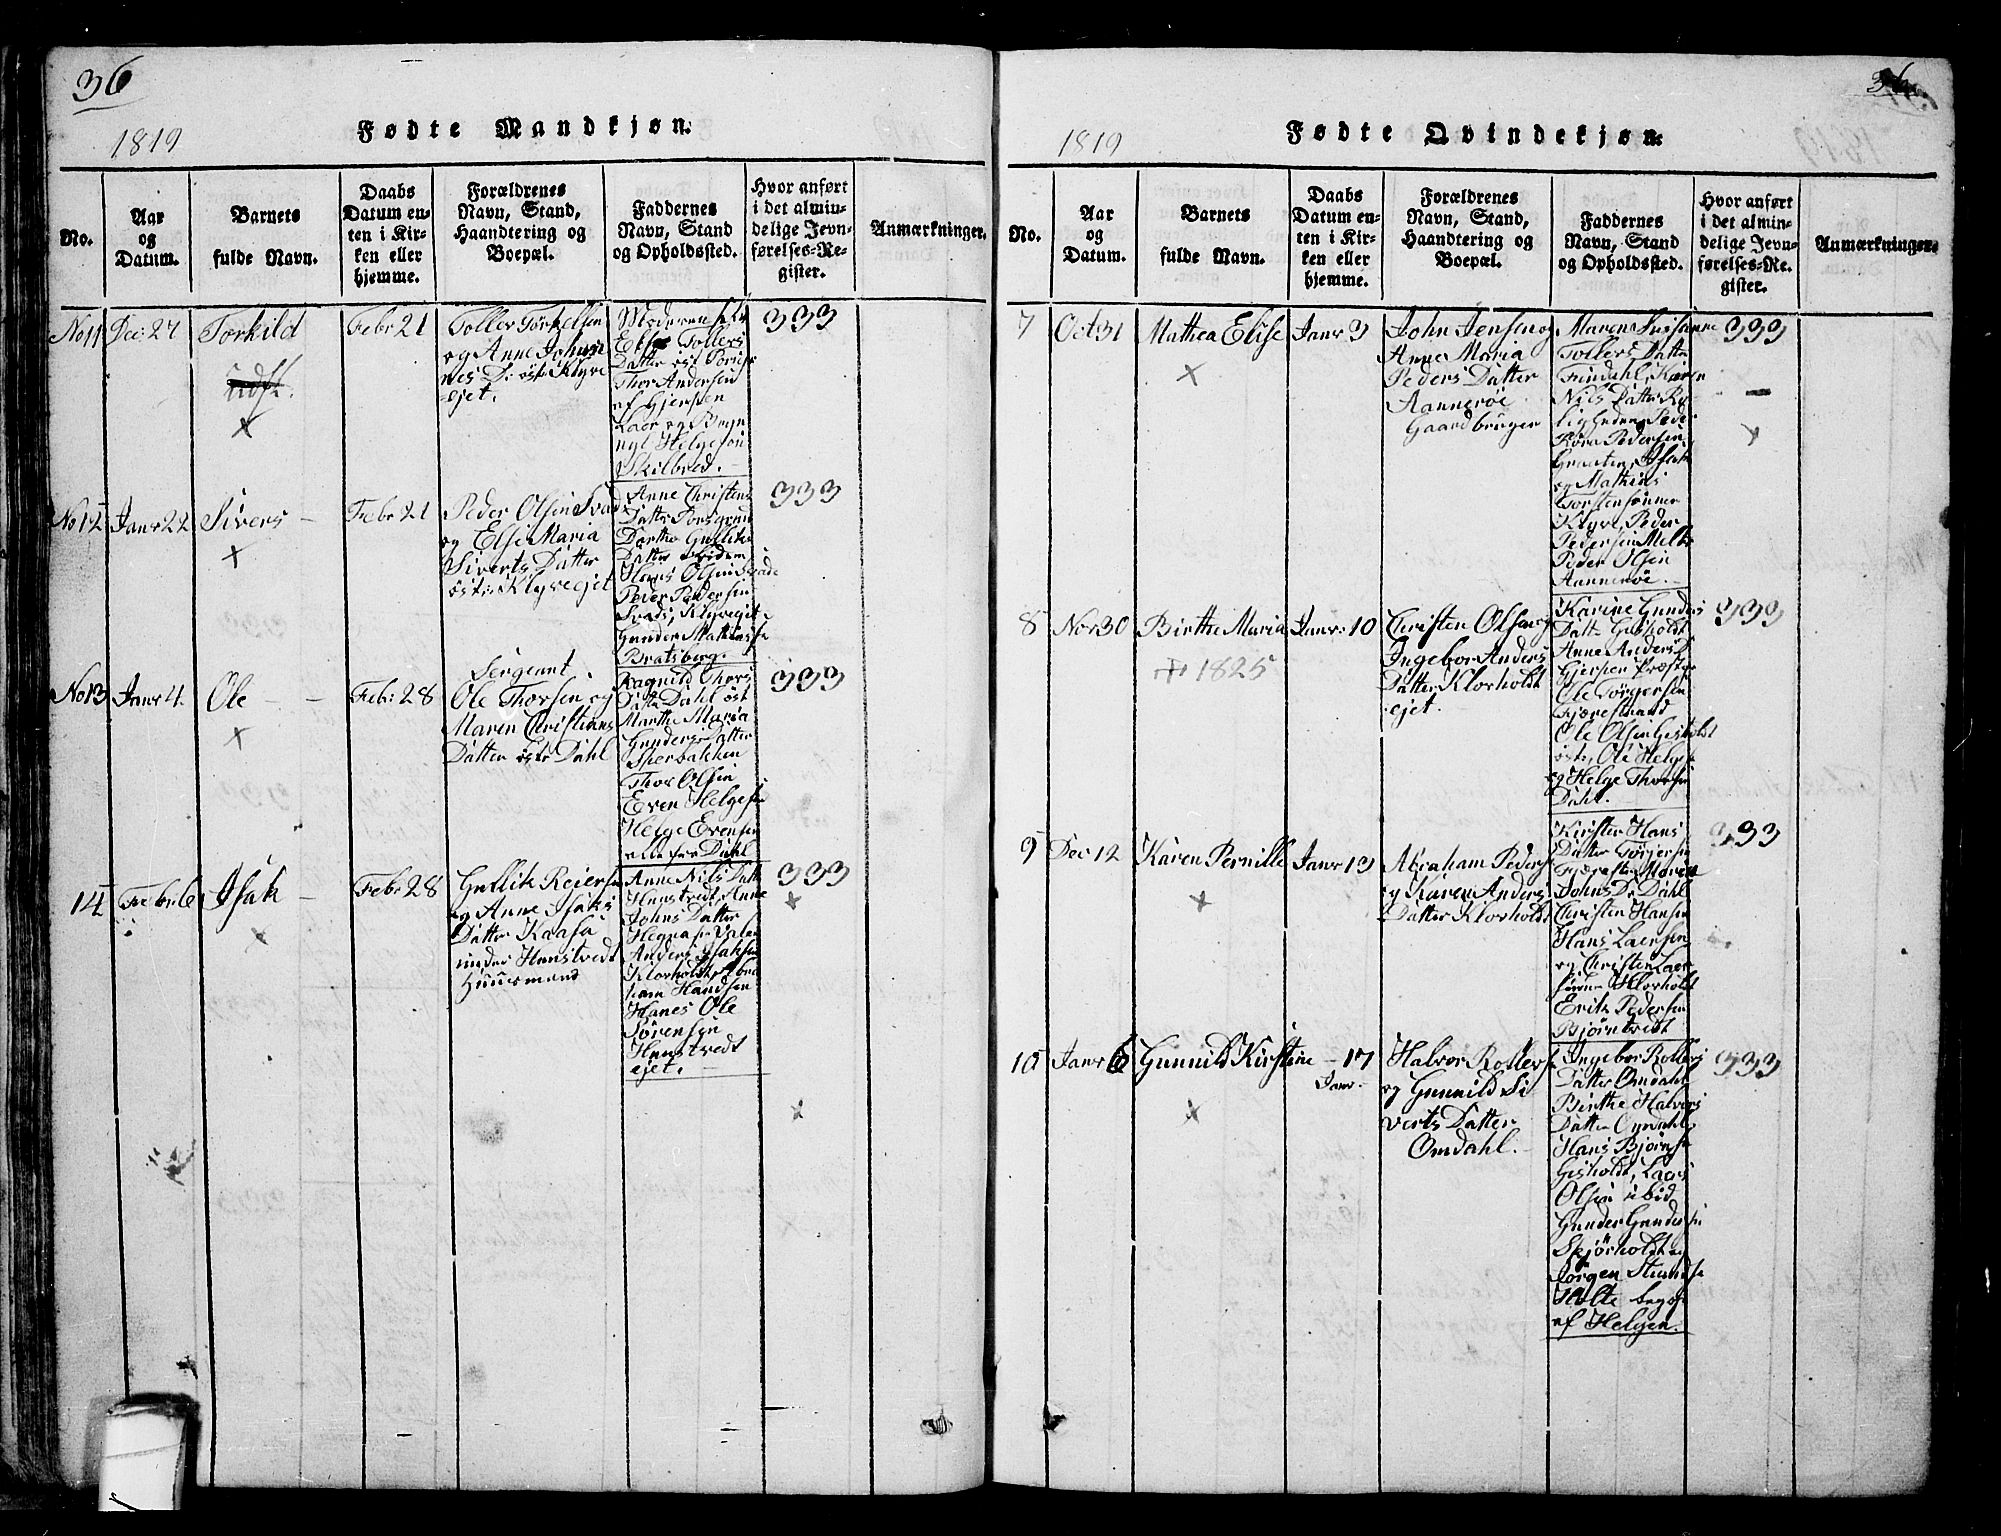 36
1819
Fødte Mandkjøn.
No.
Aar
og
Datum.
Barnets
fulde Navn.
Daabs
Datum en-
ten i Kir-
ken eller
hjemme.
Forældrenes
Navn, Stand,
Haandtering og
Boepæl.
Faddernes
Navn, Stand
og Opholdssted.
Hvor anført
i det almin-
delige Jevn-
førelses-Re-
gister.
Anmærkninger.
No 11
Dec: 27
Torkild
udf.
Febr 21
Toller Torkelsen
og Anne Johan
nes D: øst: Klyve
ejet.
Moderen selv
Tollers
Datter øst
Thor Andersen
af Gjerpen
Laer og
Helgesøn
Skilbred.
333
No 12
Janr 22
Sivers
Febr 21
Peder Olsen Svad
og Else Maria
Siverts Datter
øst: Klyveejet
Anne Christens
Datter Porsgrund
Dorthe Gulliks
Datter ibidem
Hans Olsen Svade
Peder Pedersen
Svads, Klyveejet
Gunder Mathiasse
Bratsberg.
333
No 13
Janr 4
Ole
Febr: 28
Sergeant
Ole Thorsen og
Maren Christians
Datter østr Dahl
Ragnild Thors
Datter Dahl øst
Marthe Maria
Gunders Datter
Sperbakken
Thor Olsen
Even Helgesen
Helge Evensen
alle fra Dahl
333
14
Febr: 6
Isak
Febr 28
Gullik Reierse
og Anne Isaks
Datter Kaasa
under Hanstvedt
Huusmand
Anne Nils Datt
Hanstvedt, Anne
Johns Datter
Hegna
Anders Isaksen
Klovholdt, Abra
ham Handsen
Hanes Ole
Sørensen
Hanstvedt
ejet.
333
36
1819
Fødte Qvindekjøn.
No.
Aar
og
Datum.
Barnets
fulde Navn.
Daabs
Datum en-
ten i Kir-
ken eller
hjemme.
Forældrenes
Navn, Stand,
Haandtering og
Boepæl.
Faddernes
Navn, Stand
og Opholdssted.
Hvor anført
i det almin-
delige Jevn-
førelses-Re-
gister.
Anmærkninger.
7
Oct 31
Mathea Elise
Janr 3
John Jensen og
Anne Maria
Peders Datter
Aannerøe
Gaardbruger
Maren Susanne
Tollers Datter
Frindahl, Karen
Nils Datter Ro
ligheden, Peder
Pedersen
Graaten, Isak
og Mathias
Torstensønner
Klyve, Peder
Pedersen
Peder Olsen
Aannerøe.
333
8
Nov 30
Birthe Maria
1825
Janr: 10
Christen Olsen og
Ingebor Anders
Datter Klovholdt
ejet.
Karine Gunders
Datter Gisholdt
Anne Anders D
Gjerpen Præste
Ole Torgersen
Fjærestrand
Ole Olsen Gisholdt
øst:, Ole Helge
og Helge Thorsen
Dahl.
333
9
Dec 12
Karen Pernille
Janr 13
Abraham Peders
og Karen Anders
Datter Klovholdt
Kirsten Hans
Datter Torgersen
Maren
Johns D: Dahl
Christen Hansen
Hans Laersen
og Christen Laer
sønn Klovholdt
Erik Pedersen
Bjørntvedt
333
10
Janr 6
Gunnild Kirstine
17
Janr.
Halvor Rollefse
og Gunnild Si
verts Datter
Omdahl.
Ingebor Rollefs
Datter Omdahl
Birthe Halvors
Datter Omdahl
Hans Bjørnse
Gisholdt, Laers
Olsen ibid
Gunder Gunderse
Skjørholdt og
Jørgen
Holte begge
af Helgen.
333